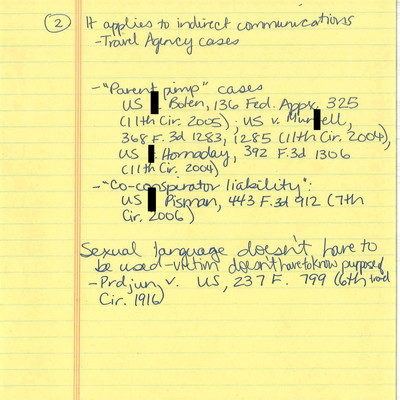 (2) It applies to indirect communications
-Travel Agency cases
-"Parent pimp" cases
US Boten, 136 Fed. Appx. 325
(11th Cir. 2005); US v.
368 F.3d 1283, 1285 (11th Cir. 2004),
US Hornaday, 392 F.3d 1306
(11th Cir. 2004)
-"Co-conspirator liability":
US Pisman, 443 F.3d 912 (7th
Cir. 2006)
Sexual language doesn't have to
be used-victim doesn't have to know purpose of
travel
- v. US, 237 F. 799 (6th
Cir. 1916)